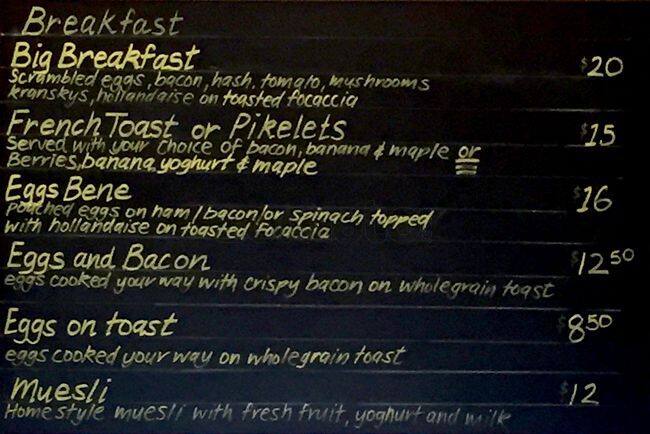 Breakfast
Big Breakfast $20
Scrambled eggs, bacon, hash, tomato, mushrooms
kranskys, hollandaise on toasted focaccia
French Toast or Pikelets $15
Served with your choice of bacon, banana & maple or
Berries, banana, yoghurt & maple
Eggs Bene $16
poached eggs on ham/bacon/or spinach topped
with hollandaise on toasted focaccia
Eggs and Bacon $12.50
eggs cooked your way with crispy bacon on wholegrain toast
Eggs on toast $8.50
eggs cooked your way on wholegrain toast
Muesli $12
Home style muesli with fresh fruit, yoghurt and milk